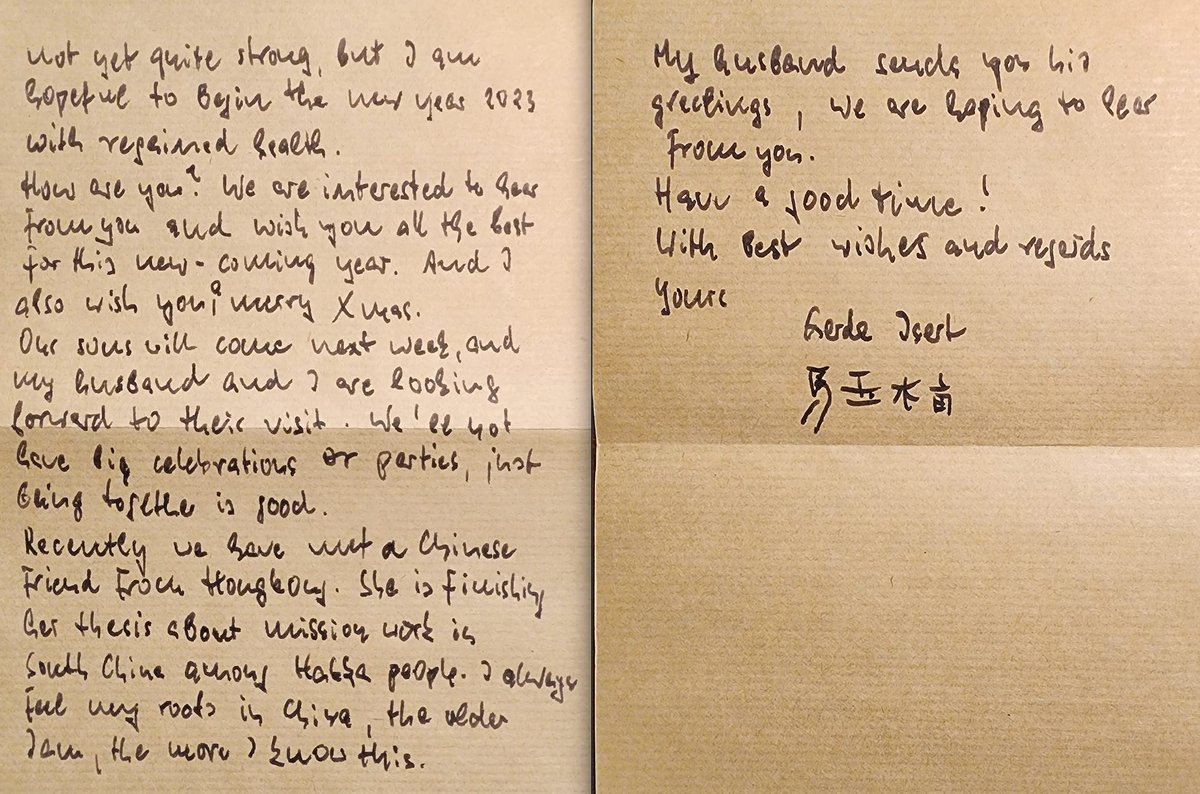 not yet quite strong, but I am
hopeful to begin the new year 2023
with regained health.
How are you? We are interested to hear
from you and wish you all the best
for this new-coming year. And I
also wish you a merry Xmas.
Our sons will come next week, and
my husband and I are looking
forward to their visit. We'll not
have big celebrations or parties, just
being together is good.
Recently we have met a Chinese
friend from Hongkong. She is finishing
her thesis about mission work in
South China among Hakka people. I always
feel my roots in China, the older
I am, the more I know this.
My husband sends you his
greetings, we are hoping to hear
from you.
Have a good time!
With best wishes and regards
Yours
Gerda Isert
玉水